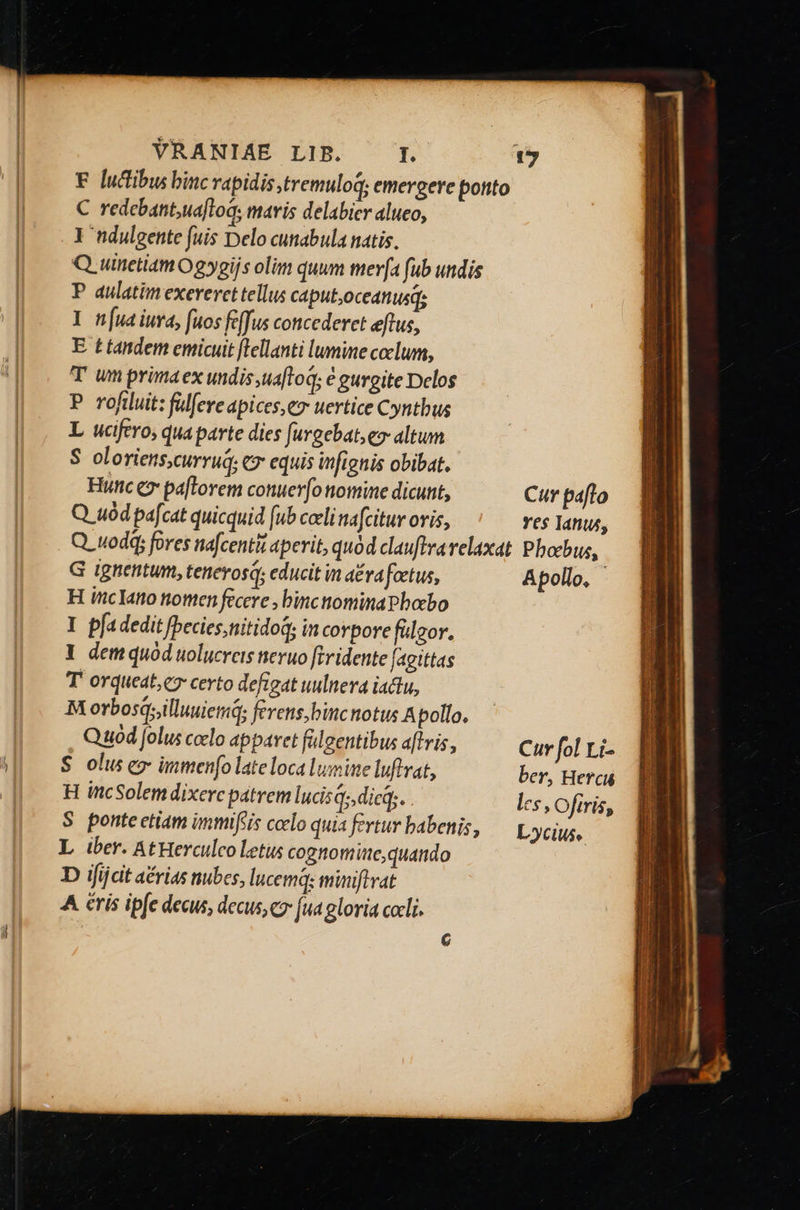 VRANIAE LIB. I. 17
F luctibus hinc rapidis, tremuloq́; emergere ponto
C redebant, uaſtoq́; maris delabier alueo,
I ndulgente ſuis Delo cunabula natis.
Q uinetiam Ogygijs olim quum merſa ſub undis
P aulatim exereret tellus caput, oceanusq́;
I nſua iura, ſuos feſſus concederet æſtus,
E t tandem emicuit ſtellanti lumine cœlum,
T um prima ex undis, uaſtoq́; è gurgite Delos
P roſiluit: fulſere apices, & uertice Cynthus
L ucifero, qua parte dies ſurgebat, & altum
S ol oriens, curruq́; & equis inſignis obibat.
Hunc & paſtorem conuerſo nomine dicunt, Cur paſto
Q uòd paſcat quicquid ſub cœli naſcitur oris, res Ianus,
Q uodq́; fores naſcentũ aperit, quòd clauſtra relaxat Phœbus,
G ignentum, tenerosq́; educit in aëra fœtus, Apollo.
H inc Iano nomen fecere, hinc nomina Phœbo
I pſa dedit ſpecies, nitidoq́; in corpore fulgor.
I dem quòd uolucreis neruo ſtridente ſagittas
T orqueat, & certo defigat uulnera iactu,
M orbosq́;, illuuiemq́; ferens, hinc notus Apollo.
Quòd ſolus cœlo apparet fulgentibus aſtris, Cur ſol Li-
S olus & immenſo late loca lumine luſtrat, ber, Hercu
H inc Solem dixere patrem lucisq́;, dieq́;. les, Oſiris,
S ponte etiam immiſsis cœlo quia fertur habenis, Lycius.
L iber. At Herculeo lætus cognomine, quando
D iſijcit aërias nubes, lucemq́; miniſtrat
A ëris ipſe decus, decus, & ſua gloria cœli.
C